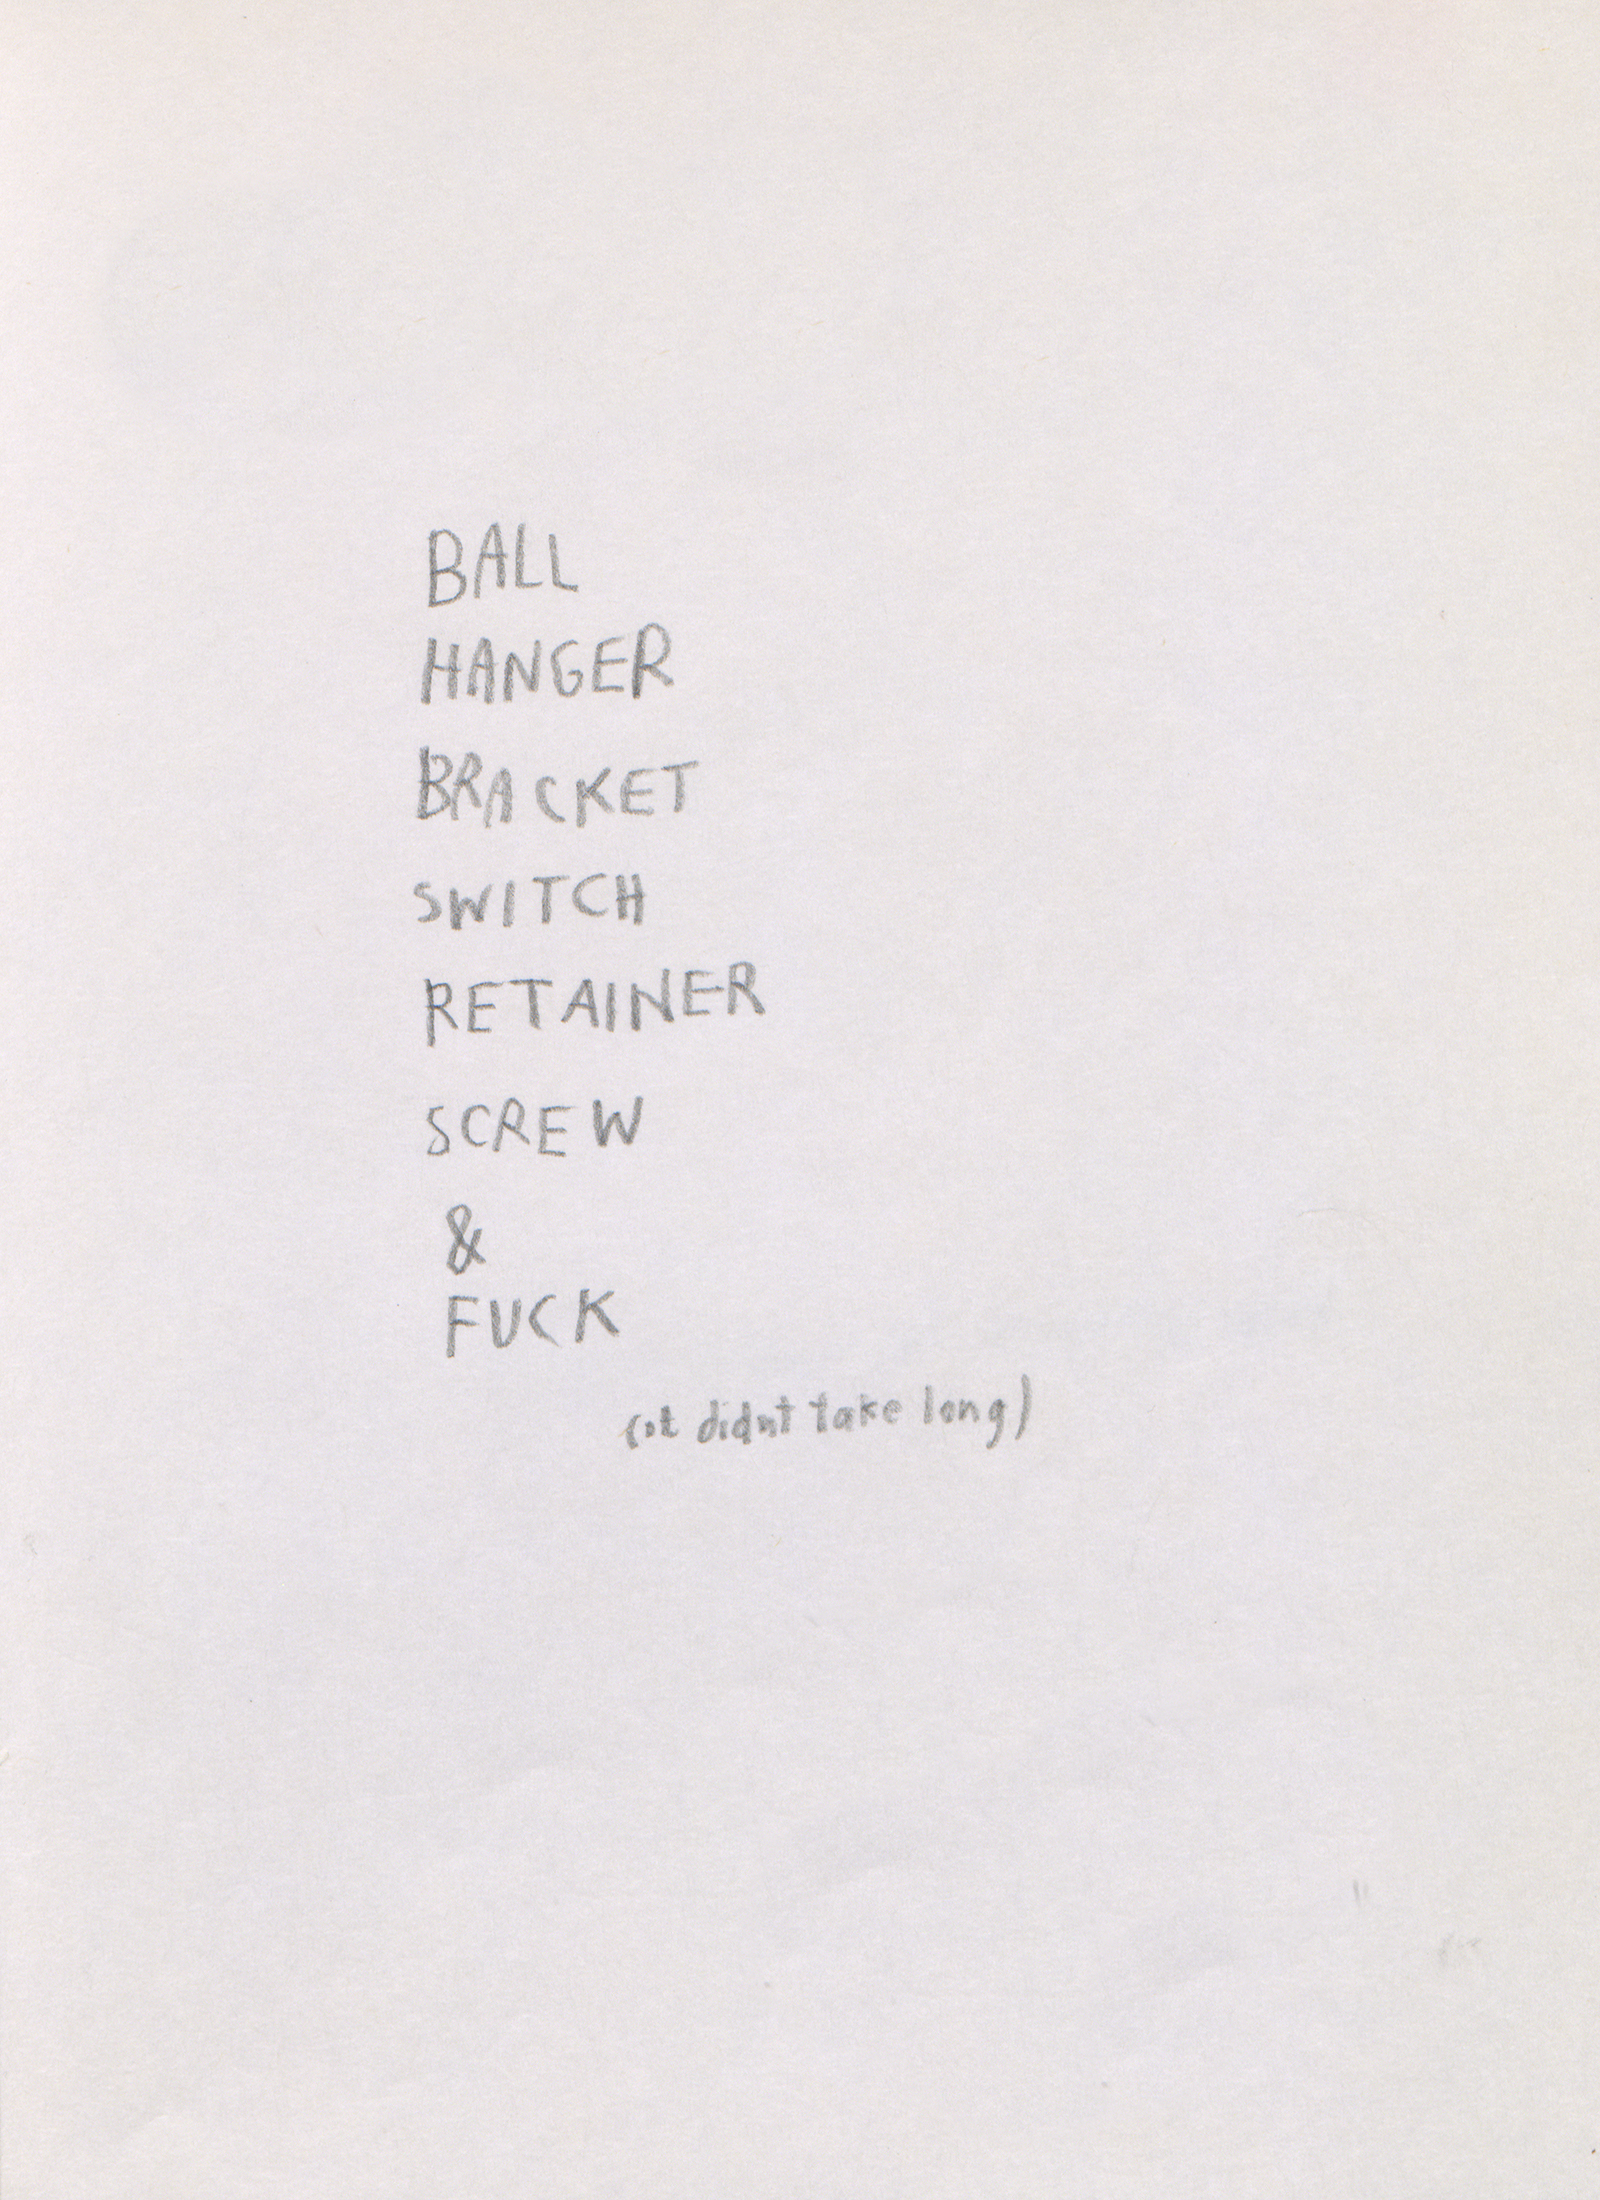 BALL
HANGER
BRACKET
SWITCH
RETAINER
SCREW
&
FUCK
(it didnt take long)